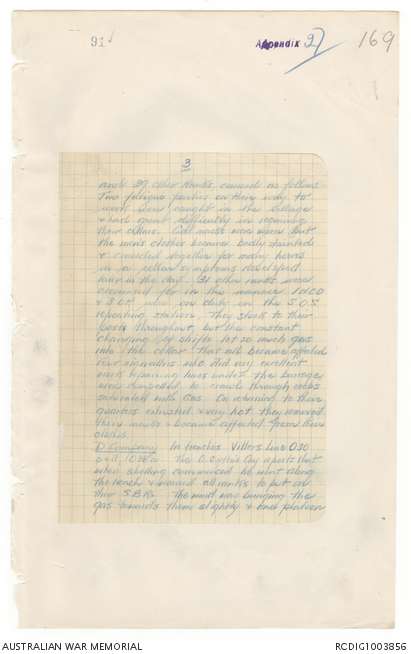 91
Appendix 27
169
3
and 39 other Ranks caused as follows
Two fatigue parties on their way to
work were caught in the barrage
& had great difficulty in regaining
their cellars. Gas masks were worn but
the men's clothes became badly tainted
& crowded together for many hours
in a cellar symptoms developed
later in the day. 31 other ranks were
in the manner 1 NCO
& 3 OR were on duty in the S.O.S
repeating station. They stuck to their
posts throughout, but the constant
changing of shifts let so much gas
into the cellar that all became affected
Four signallers who did very excellent
work repairing lines under the barrage
were compelled to crawl through crops
saturated with Gas. On returning to their
quarters exhausted & very hot they removed
their masks & became affected from their
clothes
D Company In trenches Villers Line O30
The O.C of this Coy reports that
when shelling commenced he went along
the trench & warned all ranks to put on
their S.B.Rs. The wind was bringing the
gas towards them slightly & one platoon
AUSTRALIAN WAR MEMORIAL
RCDIG1003856